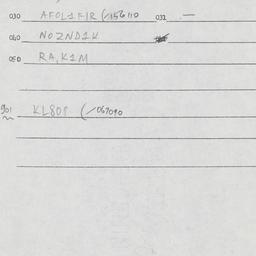 030 AFOL1FIR (/156110 032 —
040 NOZND1K
050 RA,K1M
901 KL80P (/067090